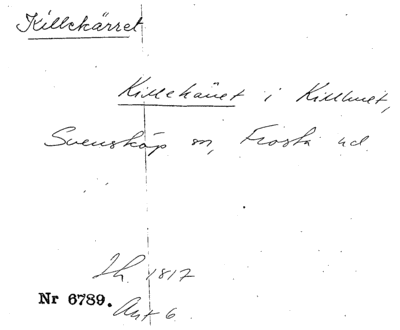 Killekärret
Killekärret i Killhult,
Svensköp sn, Frosta hd.
Lh. 1817
Nr 6789. Akt 6.